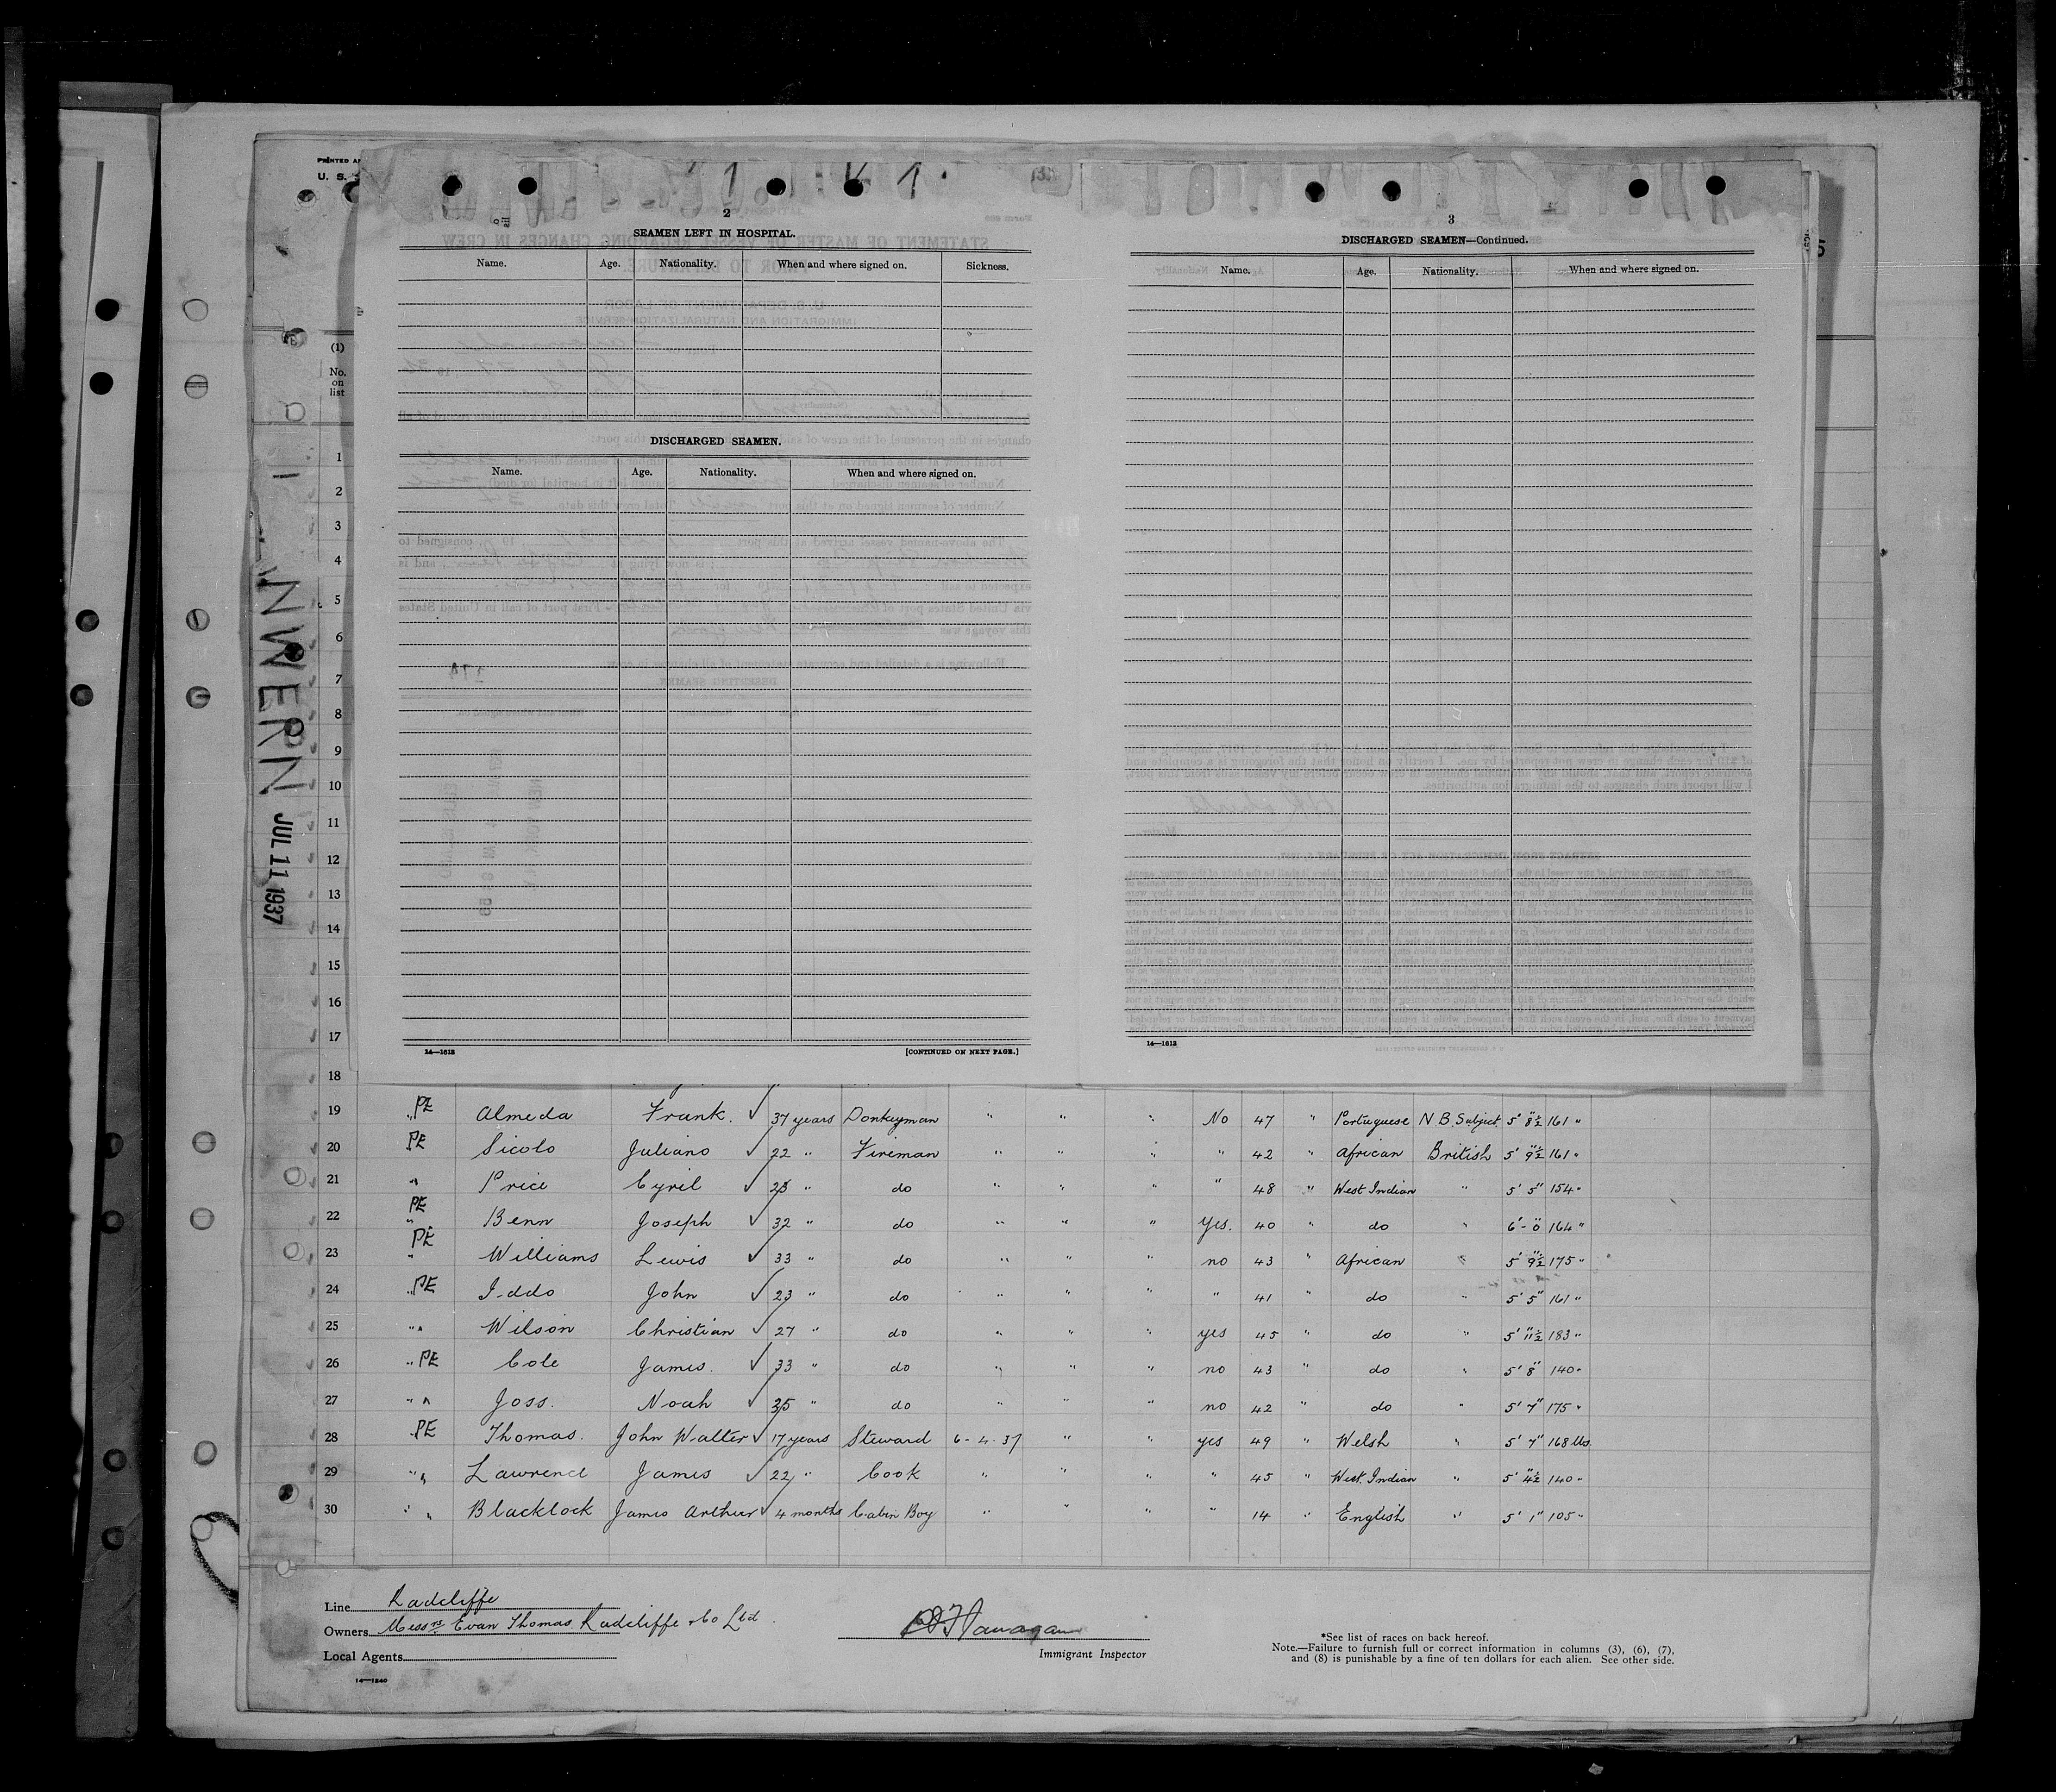 PRINTED
U. S.
(1)
No.
on
list
2
SEAMEN LEFT IN HOSPITAL.
Name. Age. Nationality. When and where signed on. Sickness.
DISCHARGED SEAMEN.
Name. Age. Nationality. When and where signed on.
14—1613 [CONTINUED ON NEXT PAGE.]
3
DISCHARGED SEAMEN—Continued.
Name. Age. Nationality. When and where signed on.
14—1613
NWERN JUL 11 1937
1
2
3
4
5
6
7
8
9
10
11
12
13
14
15
16
17
18
19 " PE Almeda Frank. ✓ 37 years Donkeyman " " " No 47 " Portuguese N B. Subject 5' 8½" 161 "
20 PE Sicolo Juliano ✓ 22 " Fireman " " " " 42 " African British 5' 9½" 161 "
21 " Price Cyril ✓ 25 " do " " " " 48 " West Indian " 5' 5" 154 "
22 PE " Benn Joseph ✓ 32 " do " " " Yes. 40 " do " 6'-0" 164 "
23 PE " Williams Lewis ✓ 33 " do " " " no 43 " African " 5' 9½" 175 "
24 " PE Iddo John ✓ 23 " do " " " " 41 " do " 5' 5" 161 "
25 " " Wilson Christian ✓ 27 " do " " " yes 45 " do " 5' 11½" 183 "
26 " PE Cole James. ✓ 33 " do " " " no 43 " do " 5' 8" 140 "
27 " " Joss. Noah ✓ 35 " do " " " no 42 " do " 5' 7" 175 "
28 PE Thomas. John Walter ✓ 17 years Steward 6-4-37 " " yes 49 " Welsh " 5' 7" 168 lbs.
29 " " Lawrence James ✓ 22 " Cook " " " " 45 " West Indian " 5' 4½" 140 "
30 " " Blacklock James Arthur ✓ 4 months Cabin Boy " " " " 14 " English " 5' 1" 105 "
Line Radcliffe
Owners Messrs Evan Thomas Radcliffe & Co Ltd.
Local Agents
14—1240
Flanagan
Immigrant Inspector
*See list of races on back hereof.
Note.—Failure to furnish full or correct information in columns (3), (6), (7),
and (8) is punishable by a fine of ten dollars for each alien. See other side.